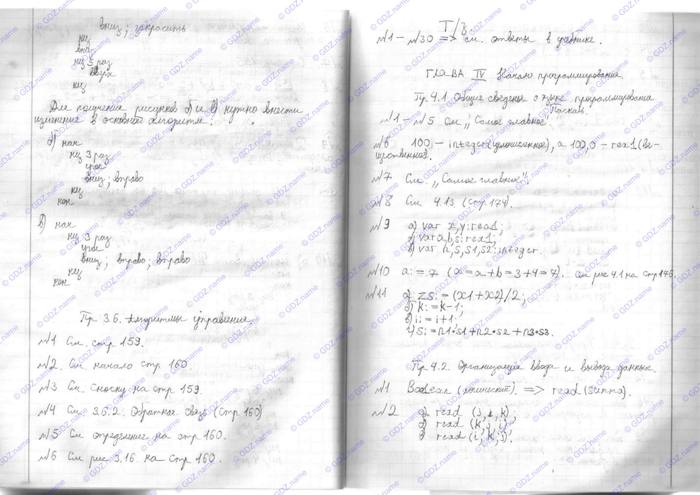 вниз; закрасить
кц
вниз
нц 5 раз
вверх
кц
Для получения рисунков б) и в) нужно внести
изменение в основной алгоритм:
б) нач
нц 3 раз
угол
вниз; вправо
кц
кон
в) нач
нц 3 раз
угол
вниз; вправо; вправо
кц
кон
Пр 3.6. Алгоритмы управления
№1 См. стр 159.
№2. См. начало стр 160
№3 См. сноску на стр 159.
№4 См. 3.6.2. Обратная связь (стр 160)
№5 См определение на стр 160.
№6 См рис 3.16 на стр 160.
Т/З
№1 – №30 => см. ответы в учебнике.
ГЛАВА IV Начало программирования
Пр 4.1 Общие сведения о языке программирования
Паскаль
№1 – №5 См „Самое главное".
№6 100 – integer (целочисленное), а 100,0 – real (ве-
щественное).
№7 См. „Самое главное".
№8 См 4.13. (стр. 174).
№9 а) var z,y:real;
б) var a,b,s:real;
в) var n,s,s1,s2:integer.
№10 a:=7 (a=a+b=3+4=7). См рис 4.1 на стр 176.
№11 а) zs:=(x1+x2)/2;
б) k:=k-1;
в) i:=i+1;
г) s:=n1*s1+n2*s2+n3*s3.
Пр 4.2. Организация ввода и вывода данных.
№1 Boolean (логический) => read(summa).
№2 а) read (i,j,k)
б) read (k,i,j)
в) read (i,k,j).
© GDZ.name